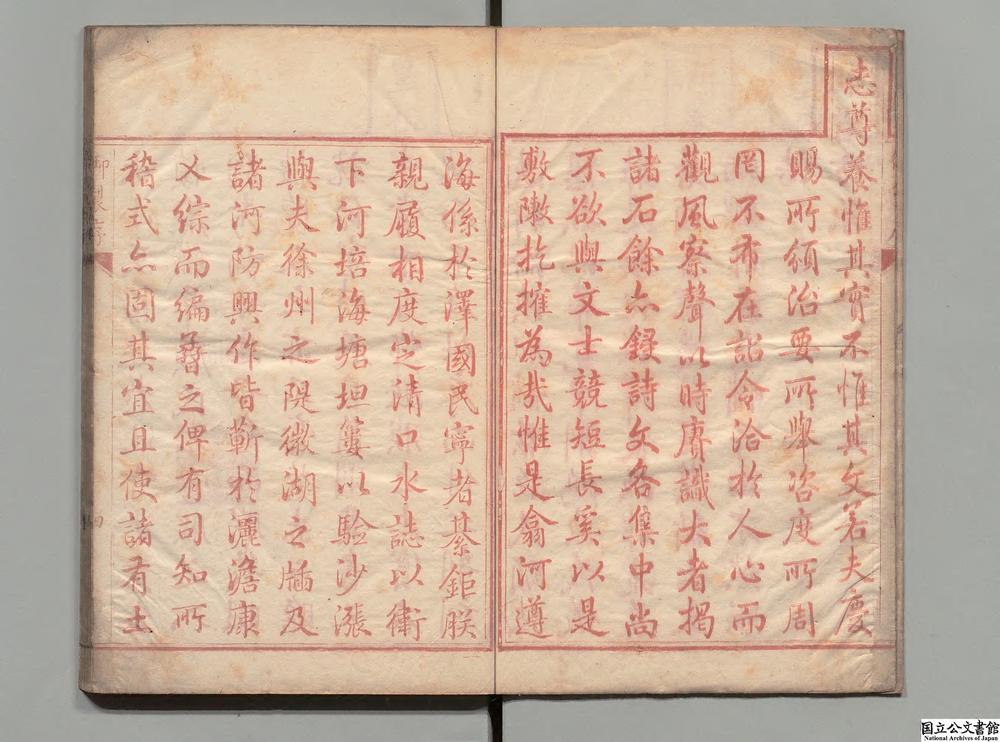 志尊養惟其實不惟其文若夫慶
賜所頒治要所舉咨度所周
罔不布在詔令洽於人心而
觀風察聲以時賡識大者揭
諸石餘亦録詩文各集中尚
不欲與文士競短長奚以是
敷陳扢摧為㦲惟是翕河遵
海係於澤國民寧者綦鉅朕
親履相度定清口水誌以衛
下河培海塘坦簍以驗沙漲
與夫徐州之隄微湖之牐及
諸河防興作皆蘄於灑澹康
乂綜而編蕝之俾有司知所
稽式亦固其宜且使諸有土
四
国立公文書館
National Archives of Japan